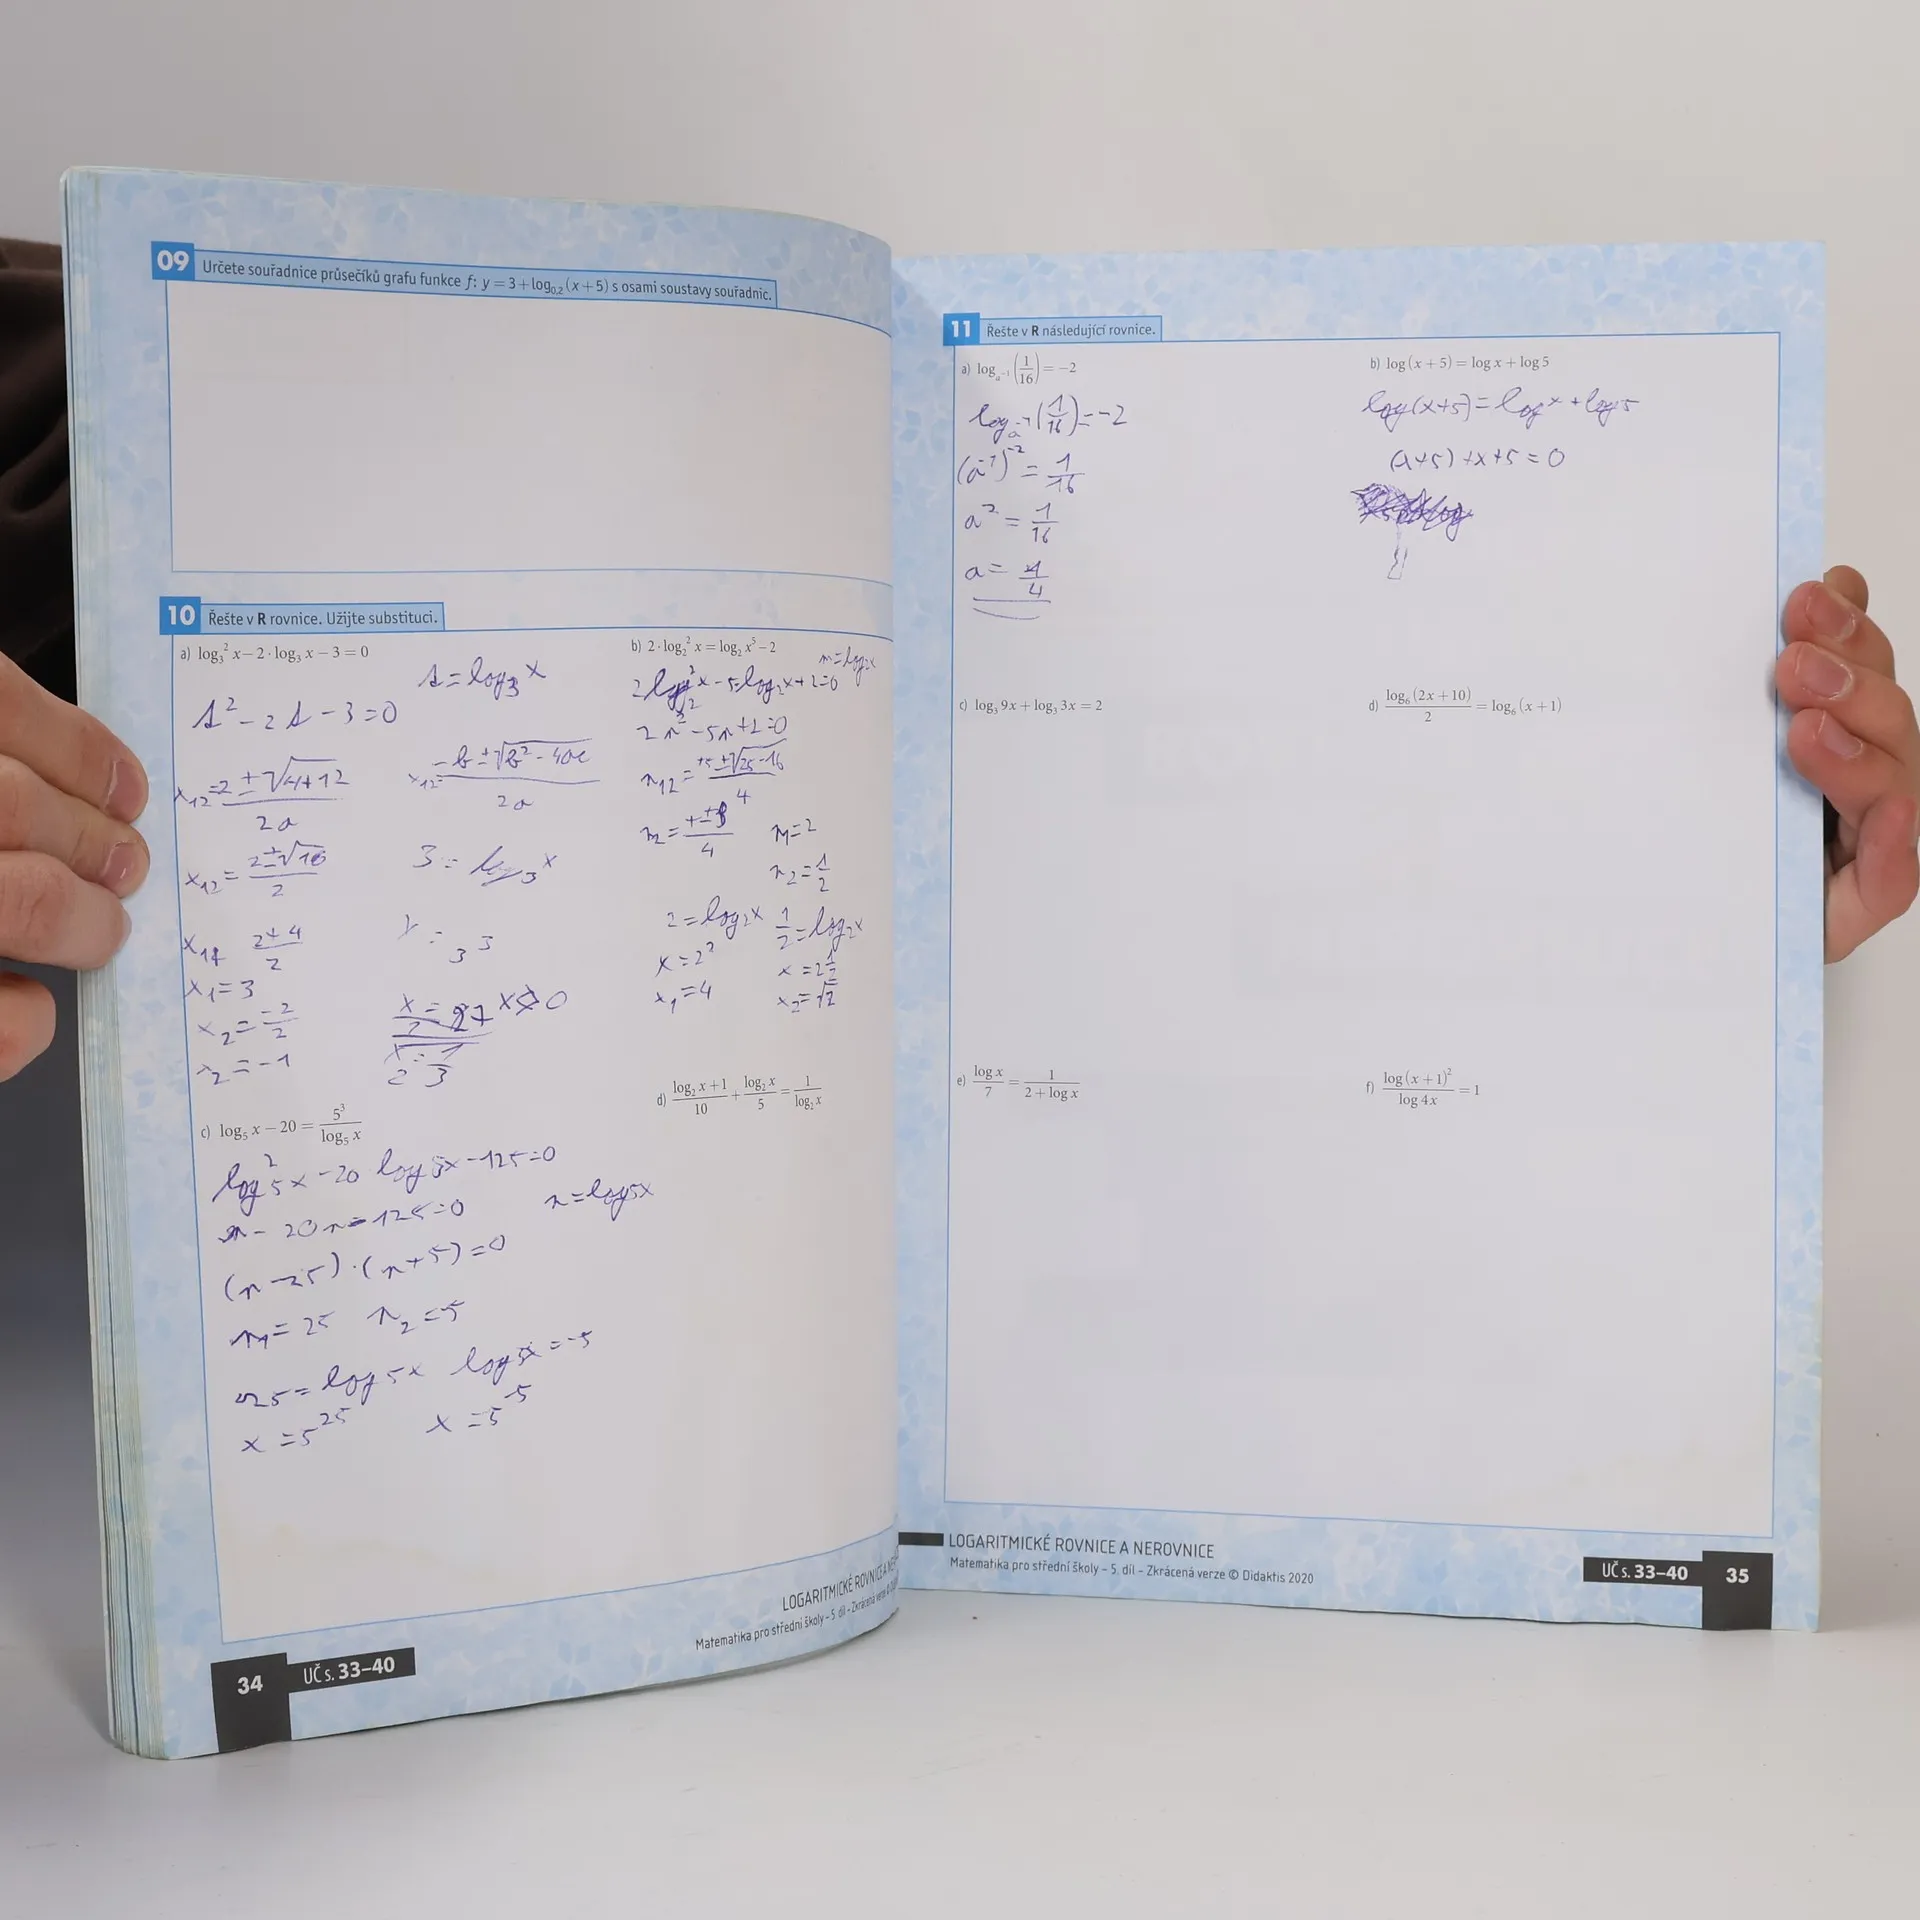 09 Určete souřadnice průsečíků grafu funkce f: y = 3 + log₀,₂ (x + 5) s osami soustavy souřadnic.
10 Řešte v R rovnice. Užijte substituci.
a) log₃² x − 2 · log₃ x − 3 = 0
s = log₃ x
s² − 2s − 3 = 0
x₁₂ = (2 ± √(4+12)) / 2a
x₁₂ = (−b ± √(b² − 4ac)) / 2a
x₁₂ = (2 ± √16) / 2
3 = log₃ x
(2+4) / 2
x = 3³
x₁ = 3
x₂ = −2/2
x₂ = −1
x = 27
x = 1/3
b) 2 · log₂² x = log₂ x⁵ − 2
m = log₂x
2 log₂² x − 5 log₂ x + 2 = 0
2n² − 5n + 2 = 0
n₁₂ = (+5 ± √(25−16))
n₁ = 2
n₂ = 1/2
2 = log₂x 1/2 = log₂x
x = 2² x = 2^(1/2)
x₁ = 4 x₂ = √2
c) log₅ x − 20 = 5³ / log₅ x
log²5x − 20 log5x − 125 = 0
n = log5x
n − 20n − 125 = 0
(n − 25) · (n + 5) = 0
n₁ = 25 n₂ = 5
25 = log5x log5x = −5
x = 5²⁵ x = 5⁻⁵
d) (log₂ x + 1) / 10 + log₂ x / 5 = 1 / log₂ x
LOGARITMICKÉ ROVNICE A
Matematika pro střední školy – 5. díl – Zkrácená verze
34 UČ s. 33–40
11 Řešte v R následující rovnice.
a) logₐ₋₁ (1/16) = −2
logₐ⁻¹ (1/16) = −2
(a⁻¹)⁻² = 1/16
a² = 1/16
a = 1/4
b) log (x + 5) = log x + log 5
log(x+5) = log x + log 5
(x+5) + x + 5 = 0
c) log₃ 9x + log₃ 3x = 2
d) log₆ (2x + 10) / 2 = log₆ (x + 1)
e) log x / 7 = 1 / (2 + log x)
f) log (x + 1)² / log 4x = 1
LOGARITMICKÉ ROVNICE A NEROVNICE
Matematika pro střední školy – 5. díl – Zkrácená verze © Didaktis 2020
UČ s. 33–40 35